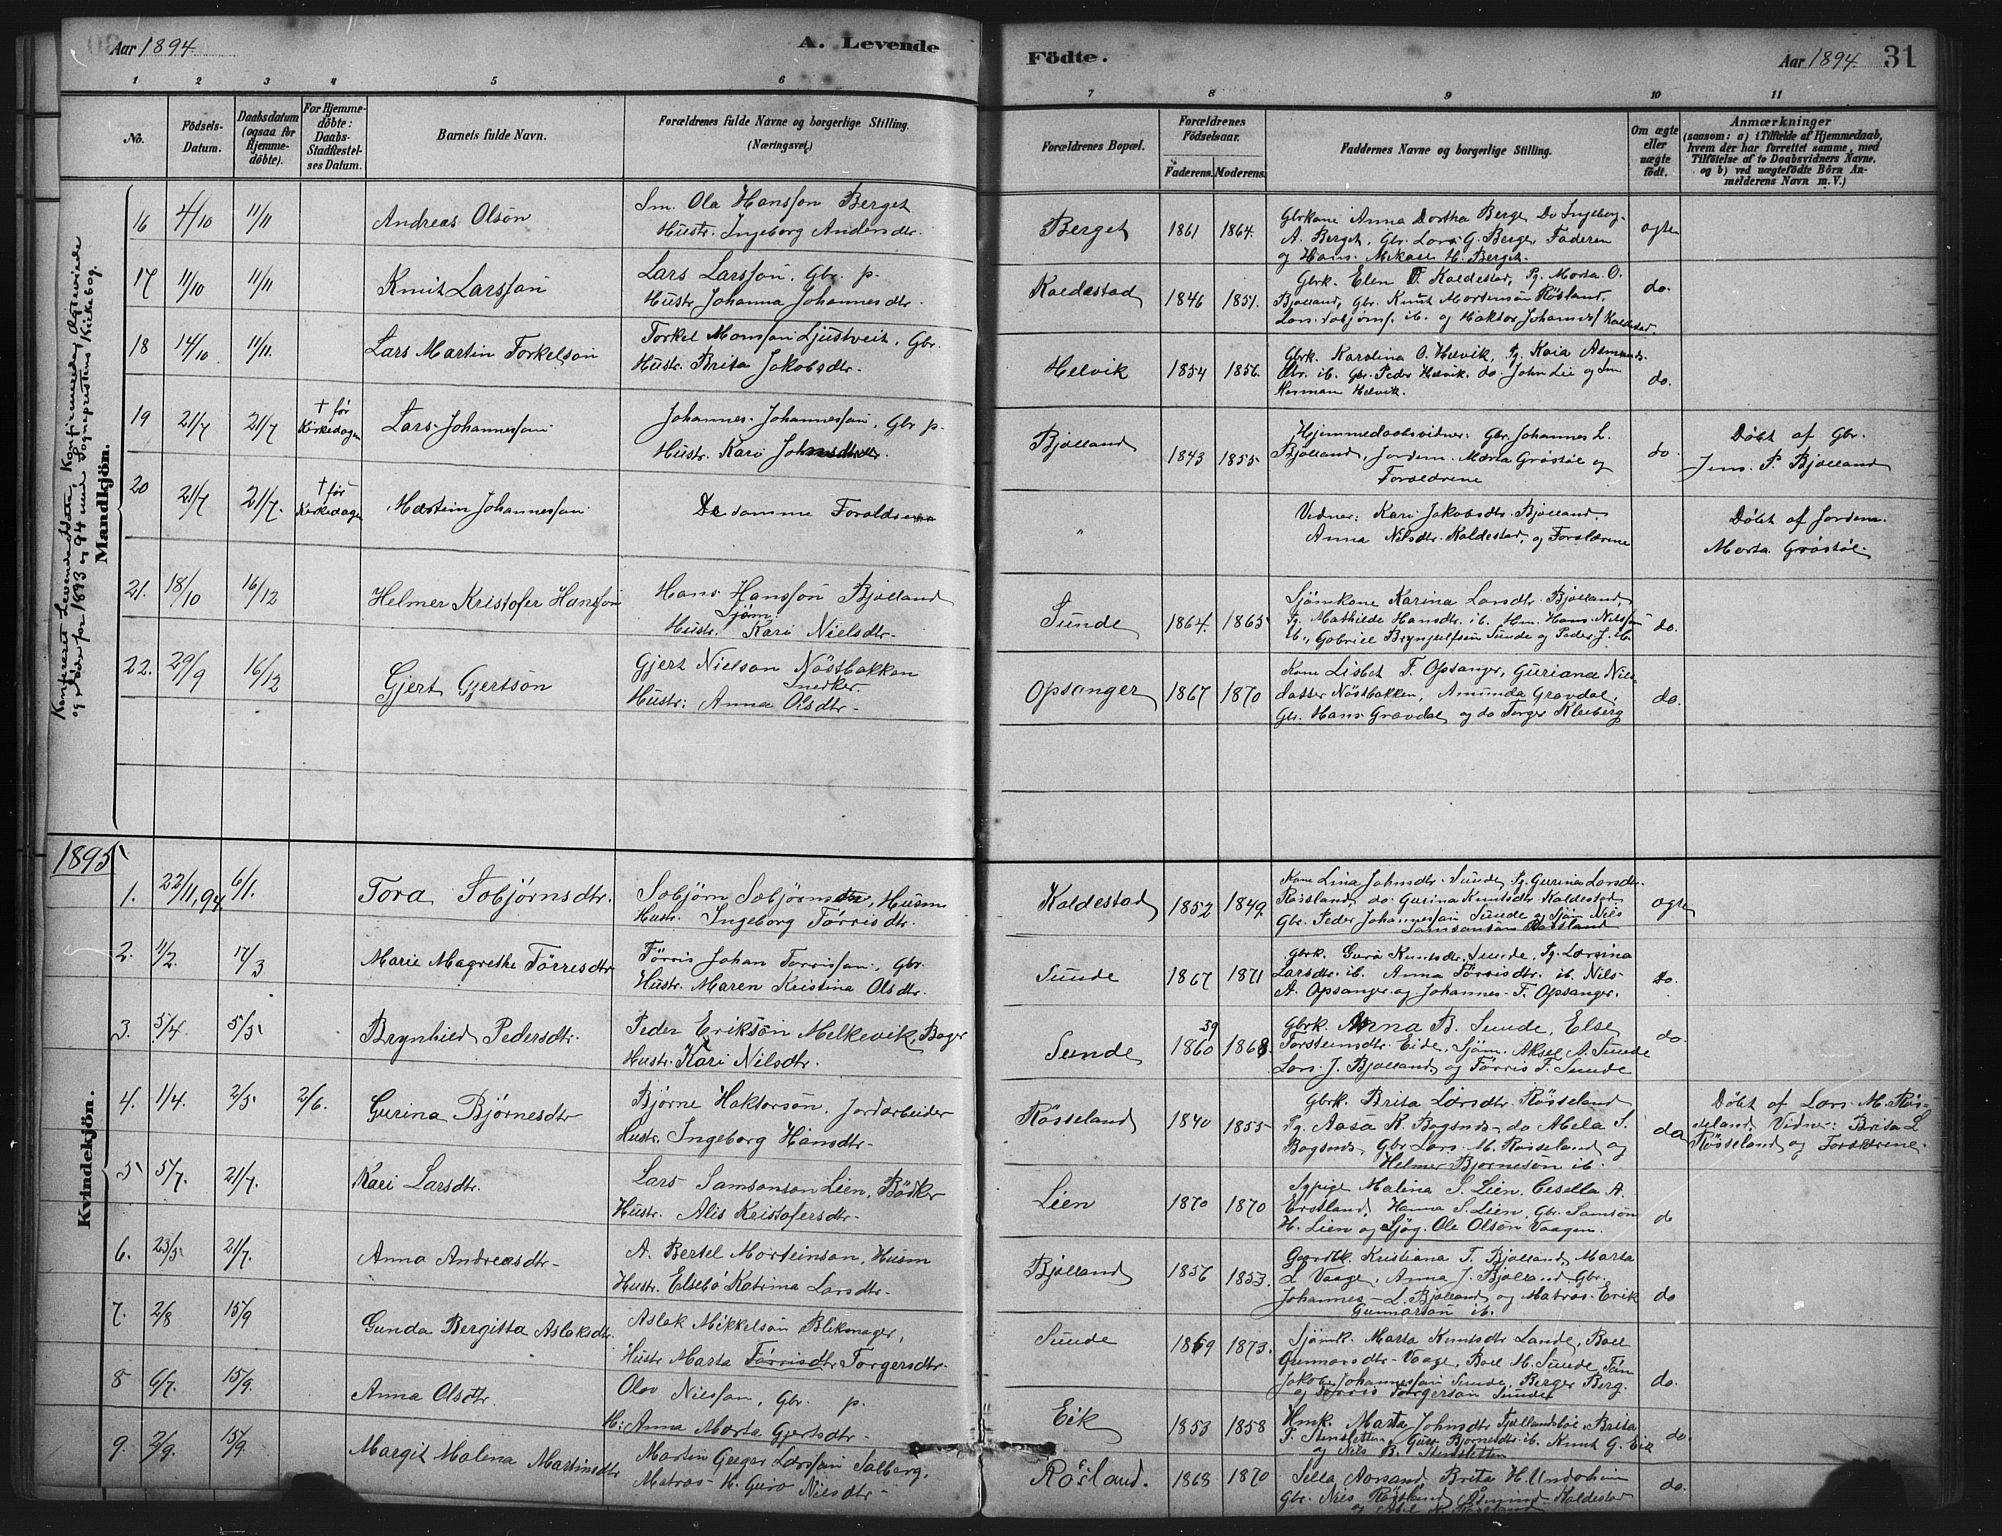 Aar 1894.
A. Levende
Födte.
Aar 1894.
31
1 2 3 4 5 6 7 8 9 10 11
No.
Födsels-Datum.
Daabsdatum (ogsaa for Hjemme-döbte).
For Hjemme-döbte: Daabs-Stadfæstel-ses Datum.
Barnets fulde Navn.
Forældrenes fulde Navne og borgerlige Stilling. (Næringsvei)
Forældrenes Bopæl.
Forældrenes Födselsaar.
Faderens. Moderens.
Faddernes Navne og borgerlige Stilling.
Om ægte eller uægte födt.
Anmærkninger
(saasom: a) i Tilfælde af Hjemmedaab,
hvem der har forrettet samme, med
Tilföielse af to Daabsvidners Navne.
og b) ved uægtefödte Börn An-
melderens Navn m. V.)
Konfereret Levendefödte, Konfirmerede, Ægteviede
og döde for 1893 og 94 med Sognepræstens Kirkebog.
Mandkjön.
16 4/10 11/11 Andreas Olsön
Sm. Ola Hansson Berget
Hustr. Ingeborg Andersdtr.
Berget 1861 1864.
Gbrkone Anna Dortha Berge Do Ingeborg
A. Berget, Gbr. Lars G. Berge, Faderen
og Hans Mikael H. Berget.
ægte
17 11/10 11/11 Knut Larsson
Lars Larsson, Gbr. p.
Hustr. Johanna Johannesdtr.
Kaldestad 1846 1851.
Gbrk. Elen T. Kaldestad, Pg. Marta O.
Bjølland, Gbr. Knut Mortensön Røsland,
ib. og Haktor Johannesf Kaldestad.
do.
18 14/10 11/11. Lars Martin Torkelsön
Torkel Monsson Ljustveit, Gbr.
Hustr. Brita Jakobsdtr.
Helvik 1854 1856.
Gbrk. Karolina O. Helvik, Pg. Kaia Asmunds-
dtr. ib. Gbr. Peder Helvik. do. John Lie og Sm
Herman Helvik.
do.
19 21/7 21/7 † før Kirkedagen Lars Johannesson
Johannes Johannesson, Gbr p.
Hustr. Kari Johnsdtr.
Bjølland 1843 1855
Hjemmedaabsvidner: Gbr. Johannes L.
Bjølland, Jordem. Marta Grøstøl og
Forældrene
do.
Døbt af Gbr.
Jens P. Bjølland
20 21/7 21/7. † før Kirkedagen Martein Johannesson
De samme Forældre
"
Vidner: Kari Jakobsdtr. Bjølland
Anna Nilsdtr. Kaldestad, og Forældrene
Døbt af Jordem.
Marta Grøstøl
21. 18/10 16/12 Helmer Kristofer Hansson
Hans Hansson Bjølland
Sjöm.
Hustr. Kari Nielsdtr.
Sunde 1864. 1865
Sjömkone Karina Larsdtr. Bjølland,
Pg. Mathilde Hansdtr. ib. Hm. Hans Nilsson
ib., Gabriel Brynjulfsen Sunde og Peder J. ib.
do.
22. 29/9 16/12 Gjert Gjertsön
Gjert Nielsön Nöstbakken
Snedker.
Hustr: Anna Olsdtr.
Opsanger 1867 1870
Kone Lisbet T. Opsanger, Guriana Niels-
datter Nöstbakken, Amunda Gravdal,
Gbr. Hans Gravdal og do Torger Kleiberg
do.
1895
Kvindekjön.
1. 22/11,94 6/1. Tora Torbjørnsdtr.
Torbjørn Torbjørnson, Husm
Hustr. Ingeborg Tørrisdtr.
Kaldestad 1852 1849.
Kone Lina Johnsdtr. Sunde, Pg. Gurina Larsdtr.
Røssland, do. Gurina Knutsdtr. Kaldestad
Gbr. Peder Johannesson Sunde og Sjöm Nils
Samsonsön Røssland
ægte
2. 11/2. 17/3 Marie Magrethe Tørrisdtr
Tørris Johan Tørrisson, Gbr.
Hustr. Maren Kristina Olsdtr.
Sunde 1867 1871
Gbrk. Guri Knutsdtr. Sunde, Pg. Larsina
Larsdtr. ib. Anna Tørrisdtr. ib. Nils
A. Opsanger og Johannes T. Opsanger.
do.
3. 5/4. 5/5 Brynhild Pedersdtr.
Peder Eriksön Melkevik, Bager
Hustr. Kari Nilsdtr.
Sunde 1860 39 1868.
Gbrk. Anna B. Sunde, Else
Torsteinsdtr. Eide, Sjöm. Aksel A. Sunde
Lars J. Bjølland og Tørris T. Sunde
do.
4. 1/4. 2/5 2/6. Gurina Bjørnesdtr
Bjørne Haktorsön, Jordarbeider
Hustr. Ingeborg Hansdtr.
Røsseland 1840 1855
Gbrk. Brita Larsdtr. Røsseland
Pg. Aasa K. Bogsnes, do Mela S.
Bogsnes, Gbr Lars M. Røsseland og
Helmer Bjørnesön ib.
do
Døbt af Lars M. Røs-
seland Vidner: Brita L
Røsseland og Forældrene.
5 5/7. 21/7. Kari Larsdtr.
Lars Samsonson Lien, Bödker
Hustr. Alis Kristofersdtr.
Lien 1870 1870
Sypige Malina S. Lien, Cesella A.
Erstland, Hanna S. Lien, Gbr. Samsön
H. Lien og Sjøg. Ole Olsön Vaagen.
do
6. 23/5 21/7. Anna Andreasdtr.
A. Bertel Morteinson, Husm
Hustr. Elsebø Katrina Larsdtr.
Bjølland 1856 1853.
Kristiana T. Bjølland, Marta
L. Vaage, Anna J. Bjølland, Gbr.
Johannes L. Bjølland og Matros Erik
Gunnarson ib.
do
7. 2/8 15/9 Gunda Bergitta Aslaksdtr
Aslak Mikkelsön Bliksmager,
Hustr Marta Tørrisdtr Torgersdtr.
Sunde 1869 1873.
Sjömk. Marta Knutsdtr Lande, Boel
Gunnarsdtr Vaage, Boel M. Sunde
Jakob Johannesson Sunde, Berger Berg.
og Tørris Torgerson Sunde
do.
8 6/7. 15/9. Anna Olsdtr.
Olav Nilsson, Gbr. p.
H: Anna Marta Gjertsdtr.
Eik 1853 1858
Hmk. Marta Johnsdtr Fjellandsbø, Brita
T. Stensletten, Guri Bjørnesdtr. ib. Knut G. Eik
og Nils B. Stensletten
do.
9. 2/9. 15/9. Margit Malena Martinsdtr
Martin Greger Larsson Salberg,
Matros H. Guro Nilsdtr
Røsland. 1868 1870
Sella Aarsand, Brita H. Undarheim
Gbr. Nils Røsland, Kaldestad
do.